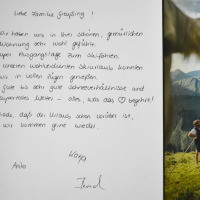 Liebe Familie Graßing !
Wir haben uns in Ihrer schönen, gemütlichen
Wohnung sehr wohl gefühlt.
Super Ausgangslage zum Skifahren.
Unseren wohlverdienten Skiurlaub konnten
wir in vollen Zügen genießen.
Gute bis sehr gute Schneeverhältnisse und
supertolles Wetter – alles, was das ♡ begehrt!
Schade, daß der Urlaub schon vorüber ist,
wir kommen gerne wieder.
Anika